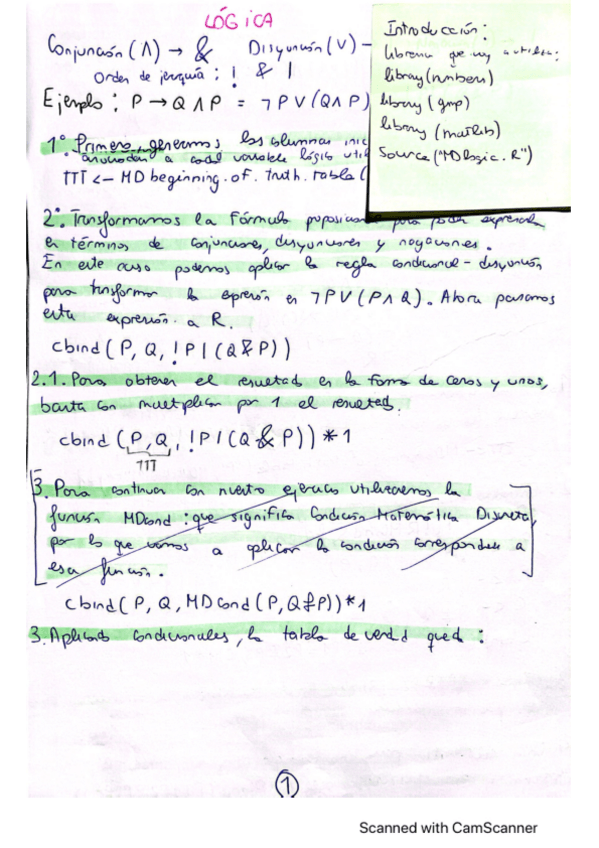 LÓGICA
Conjunción (Λ) → & Disyunción (V) –
Orden de jerarquía : ! & |
Ejemplo : P → Q Λ P = ¬ P V (Q Λ P)
Introducción :
library (numbers)
library (gmp)
library (matlib)
Source ("MD logic. R")
1º Primero, generamos las columnas
a cada variable lógica
TTT <- MD beginning. of. truth. table (
2º. Transformamos la Fórmula para poder expresarla
en términos de conjunciones, disyunciones y negaciones.
En este caso podemos aplicar la regla condicional - disyunción
para transformar la expresión en ¬ P V (P Λ Q). Ahora pasamos
esta expresión a R.
cbind ( P, Q, ! P | ( Q & P ) )
2.1. Para obtener el resultado en la forma de ceros y unos,
basta con multiplicar por 1 el resultado.
cbind ( P, Q, ! P | ( Q & P ) ) * 1
TTT
3. Para continuar con nuestro ejercicio utilizaremos la
función MDcond : que significa Condición Matemática Discreta,
por lo que vamos a aplicar la condición correspondiente a
esa función.
cbind ( P, Q, MDcond ( P, Q & P ) ) * 1
3. Aplicando condicionales, la tabla de verdad queda :
1
Scanned with CamScanner